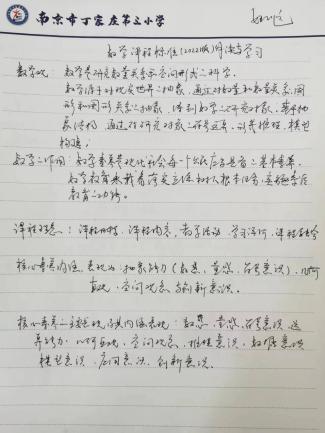 南京市丁家庄第二小学
数学课程标准(2022版)阅读与学习
数学观：数学是研究数量关系和空间形式的科学。
数学源于对现实世界的抽象，通过对数量和数量关系、图
形和图形关系的抽象，得到数学的研究对象
通过对研究对象的符号运算、形式推理、模型
构建
数学的作用：数学素养是现代社会每一个公民应当具备的基本素养。
数学教育承载着落实立德树人根本任务、实施素质
教育的功能。
课程理念：课程目标，课程内容，教学活动，学习评价，
核心素养内涵，表现为：抽象能力(数感、量感、符号意识)、几何
直观、空间观念与创新意识。
核心素养的主要表现及其内涵表现：数感、量感、符号意识、运
算能力、几何直观、空间观念、推理意识、数据意识
模型意识、应用意识、创新意识。